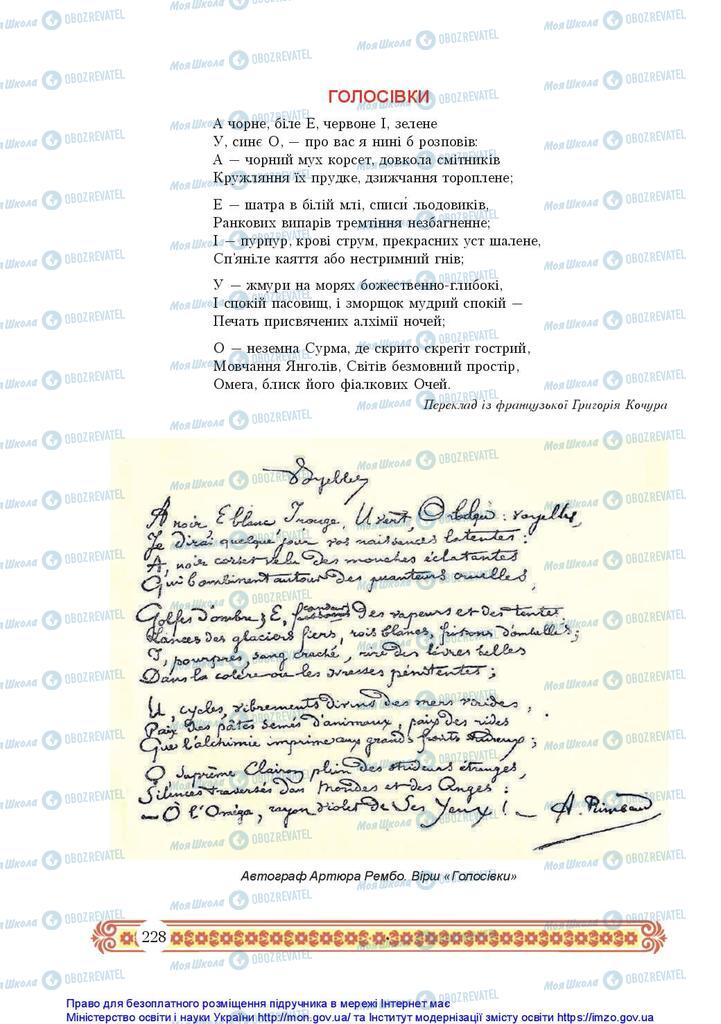 ГОЛОСІВКИ
А чорне, біле Е, червоне І, зелене
У, синє О, — про вас я нині б розповів:
А — чорний мух корсет, довкола смітників
Кружляння їх прудке, дзижчання тороплене;
Е — шатра в білій млі, списи́ льодовиків,
Ранкових випарів тремтіння незбагненне;
І — пурпур, крові струм, прекрасних уст шалене,
Сп'яніле каяття або нестримний гнів;
У — жмури на морях божественно-глибокі,
І спокій пасовищ, і зморщок мудрий спокій —
Печать присвячених алхімії ночей;
О — неземна Сурма, де скрито скрегіт гострий,
Мовчання Янголів, Світів безмовний простір,
Омега, блиск його фіалкових Очей.
Переклад із французької Григорія Кочура
Voyelles
A noir, E blanc, I rouge, U vert, O bleu : voyelles,
Je dirai quelque jour vos naissances latentes :
A, noir corset velu des mouches éclatantes
Qui bombinent autour des puanteurs cruelles,
Golfes d'ombre ; E, frissons des vapeurs et des tentes,
Lances des glaciers fiers, rois blancs, frissons d'ombelles ;
I, pourpres, sang craché, rire des lèvres belles
Dans la colère ou les ivresses pénitentes ;
U, cycles, vibrements divins des mers virides,
Paix des pâtis semés d'animaux, paix des rides
Que l'alchimie imprime aux grands fronts studieux ;
O, suprême Clairon plein des strideurs étranges,
Silences traversés des Mondes et des Anges :
— O l'Oméga, rayon violet de Ses Yeux ! — A. Rimbaud
Автограф Артюра Рембо. Вірш «Голосівки»
228
Право для безоплатного розміщення підручника в мережі Інтернет має
Міністерство освіти і науки України http://mon.gov.ua/ та Інститут модернізації змісту освіти https://imzo.gov.ua
Моя Школа OBOZREVATEL